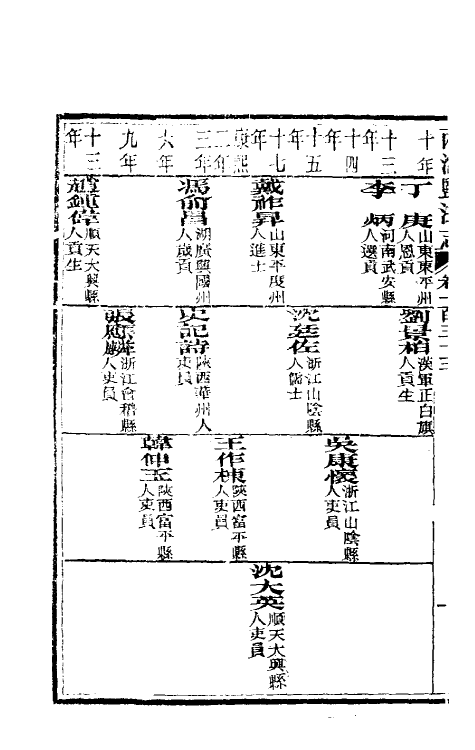 兩浙鹽法志 卷一百三十三
十年
十三年
十四年
十五年
十七年
康熙二年
三年
六年
九年
十二年
丁庚 山東東平州人恩貢
李炳 河南武安縣人選貢
戴祚昇 山東平度州人進士
馮俞昌 湖廣興國州人歲貢
趙鍾偉 順天大興縣人貢生
劉景柏 漢軍正白旗人貢生
沈廷佐 浙江山陰縣人儒士
史記詩 陝西華州人吏員
張應麟 浙江會稽縣人吏員
吳康懷 浙江山陰縣人吏員
王作棟 陝西富平縣人吏員
韓仲玉 陝西富平縣人吏員
沈大英 順天大興縣人吏員